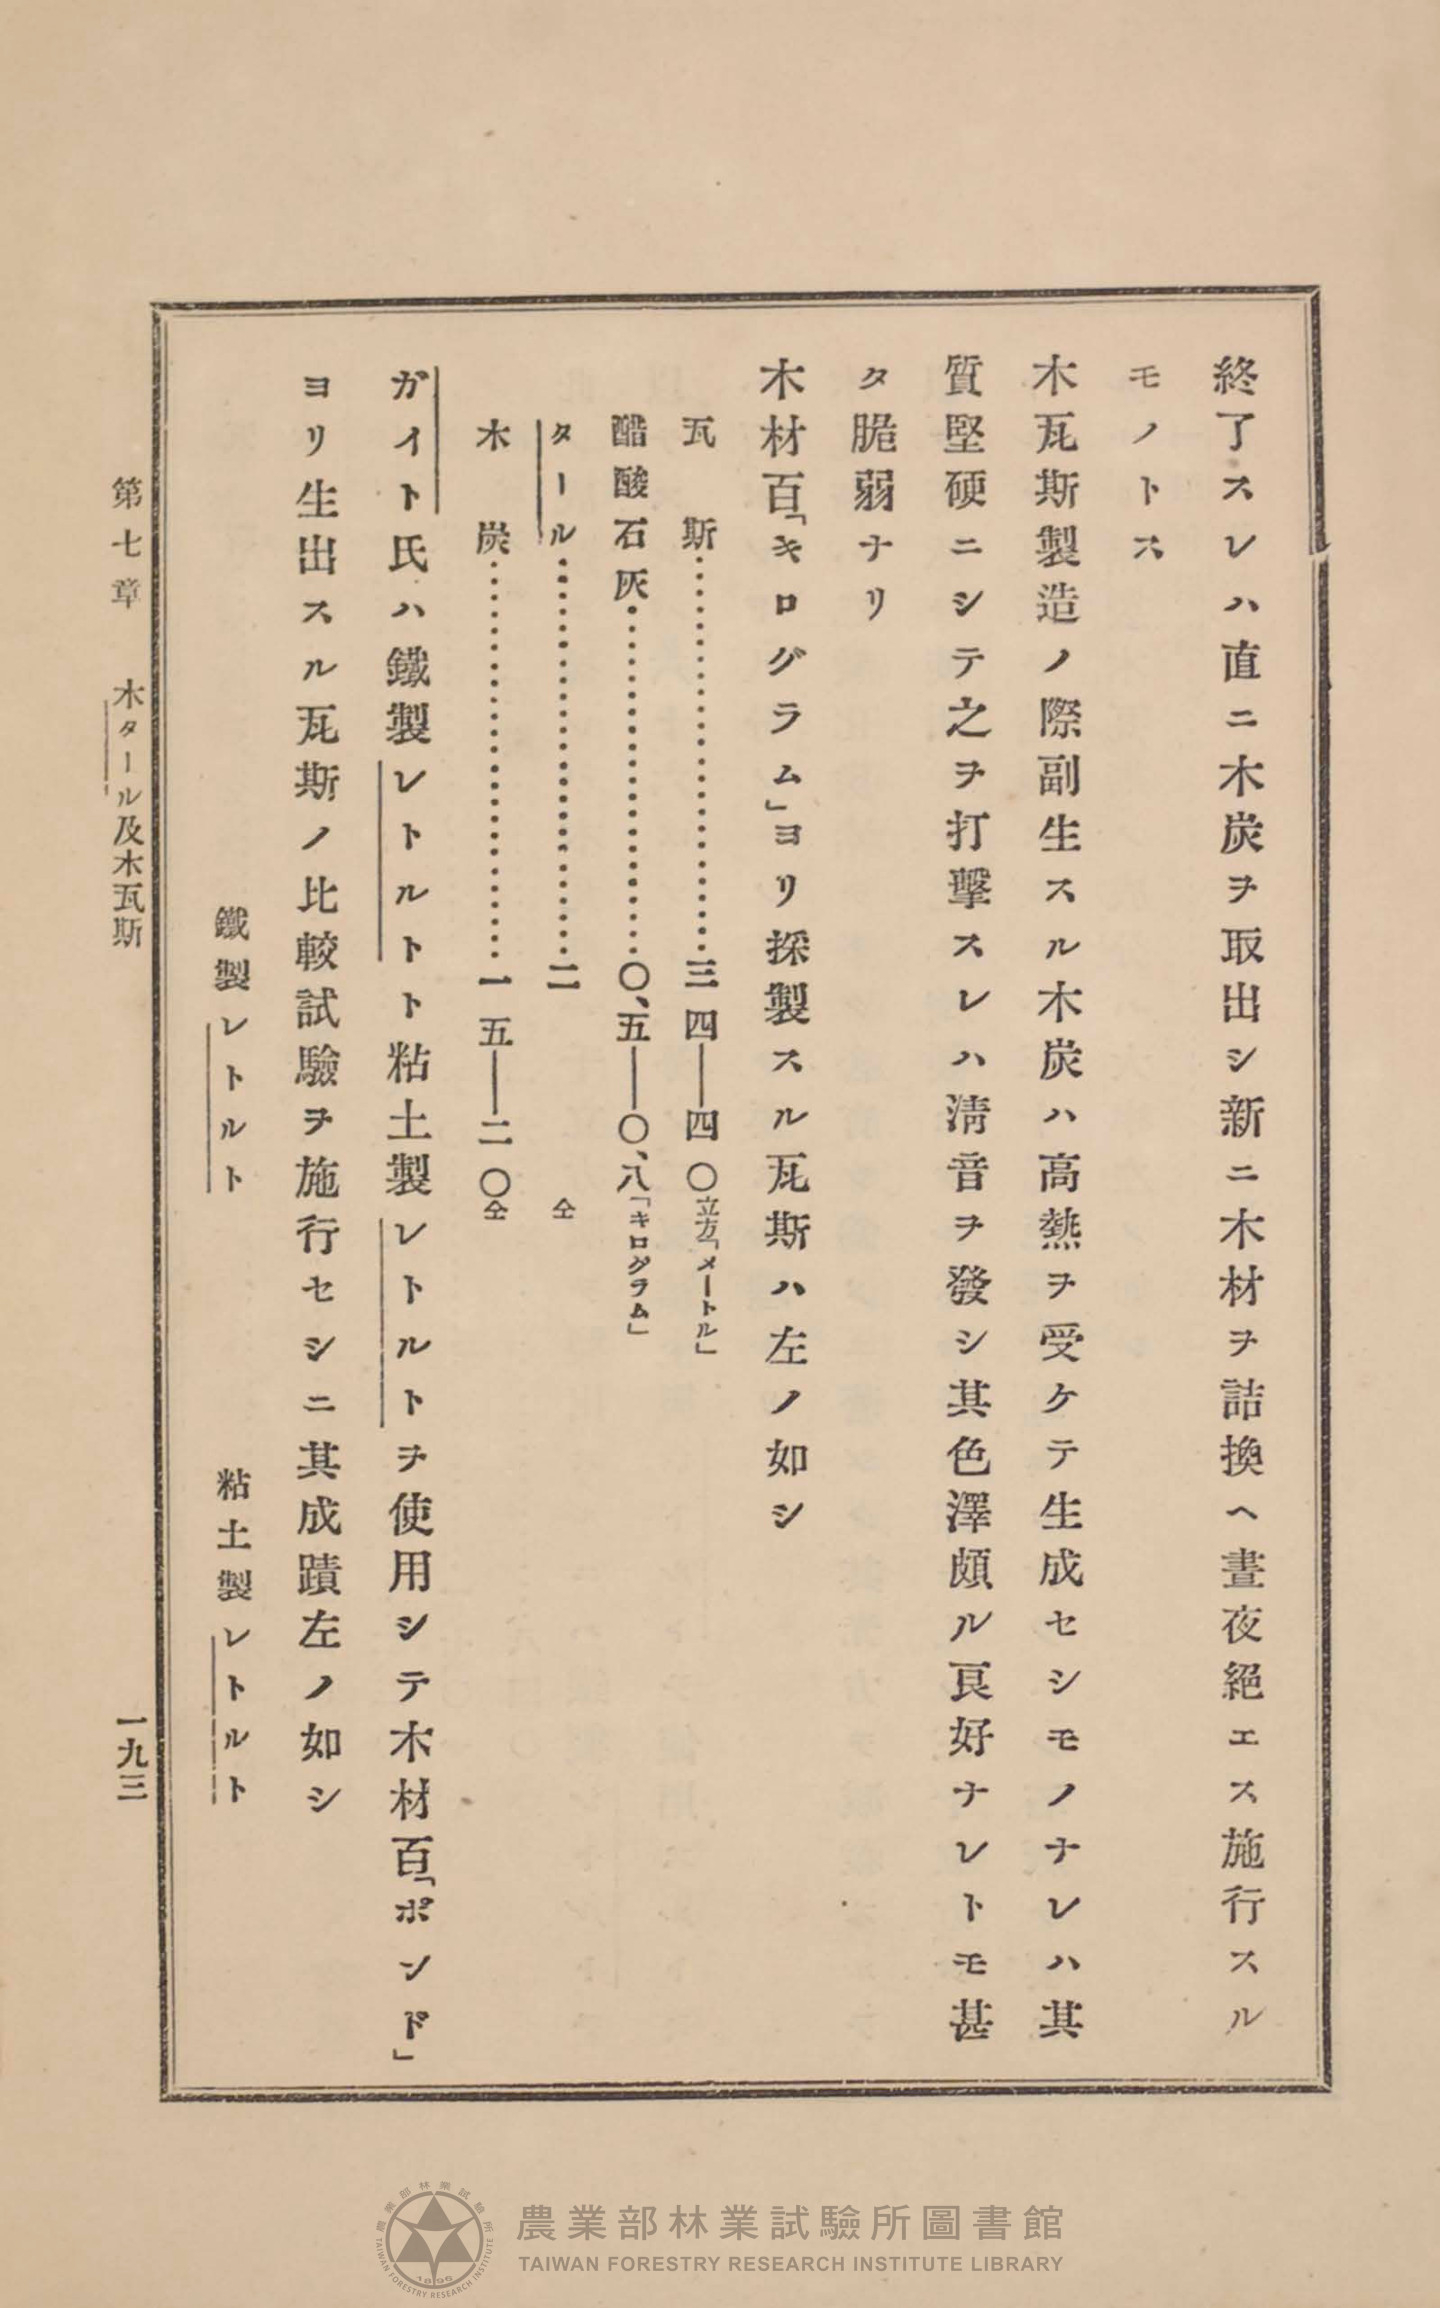 終了スレハ直ニ木炭ヲ取出シ新ニ木材ヲ詰換ヘ晝夜絕エス施行スル
モノトス
木瓦斯製造ノ際副生スル木炭ハ高熱ヲ受ケテ生成セシモノナレハ其
質堅硬ニシテ之ヲ打擊スレハ淸音ヲ發シ其色澤頗ル良好ナレトモ甚
タ脆弱ナリ
木材百「キログラム」ヨリ採製スル瓦斯ハ左ノ如シ
瓦斯……………………三四―四〇立方「メートル」
醋酸石灰……………………〇、五―〇、八「キログラム」
タール……………………二 仝
木炭……………………一五―二〇仝
ガイト氏ハ鐵製レトルトト粘土製レトルトヲ使用シテ木材百「ポンド」
ヨリ生出スル瓦斯ノ比較試驗ヲ施行セシニ其成蹟左ノ如シ
鐵製レトルト 粘土製レトルト
第七章 木タール及木瓦斯 一九三
農業部林業試驗所圖書館
TAIWAN FORESTRY RESEARCH INSTITUTE LIBRARY
農業部林業試驗所
TAIWAN FORESTRY RESEARCH INSTITUTE
1896